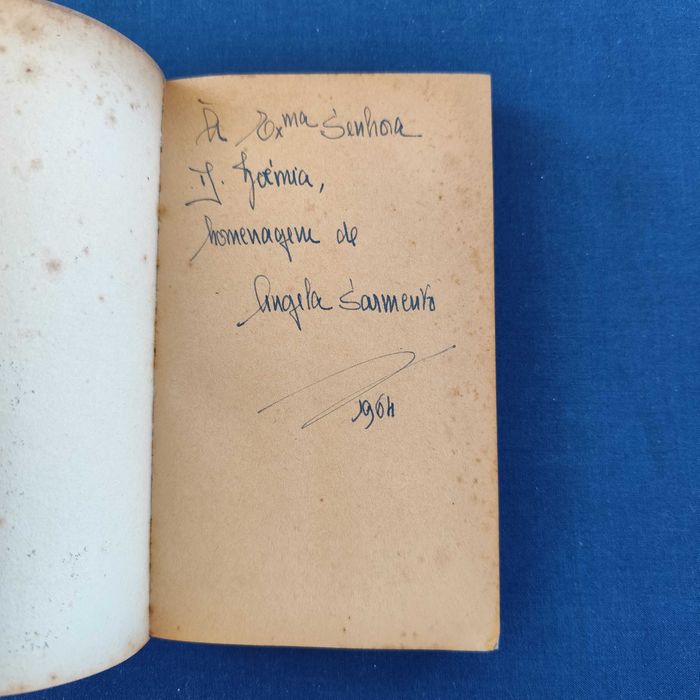 À Exma Senhora
D. Noémia,
homenagem de
Angela Sarmento
1964